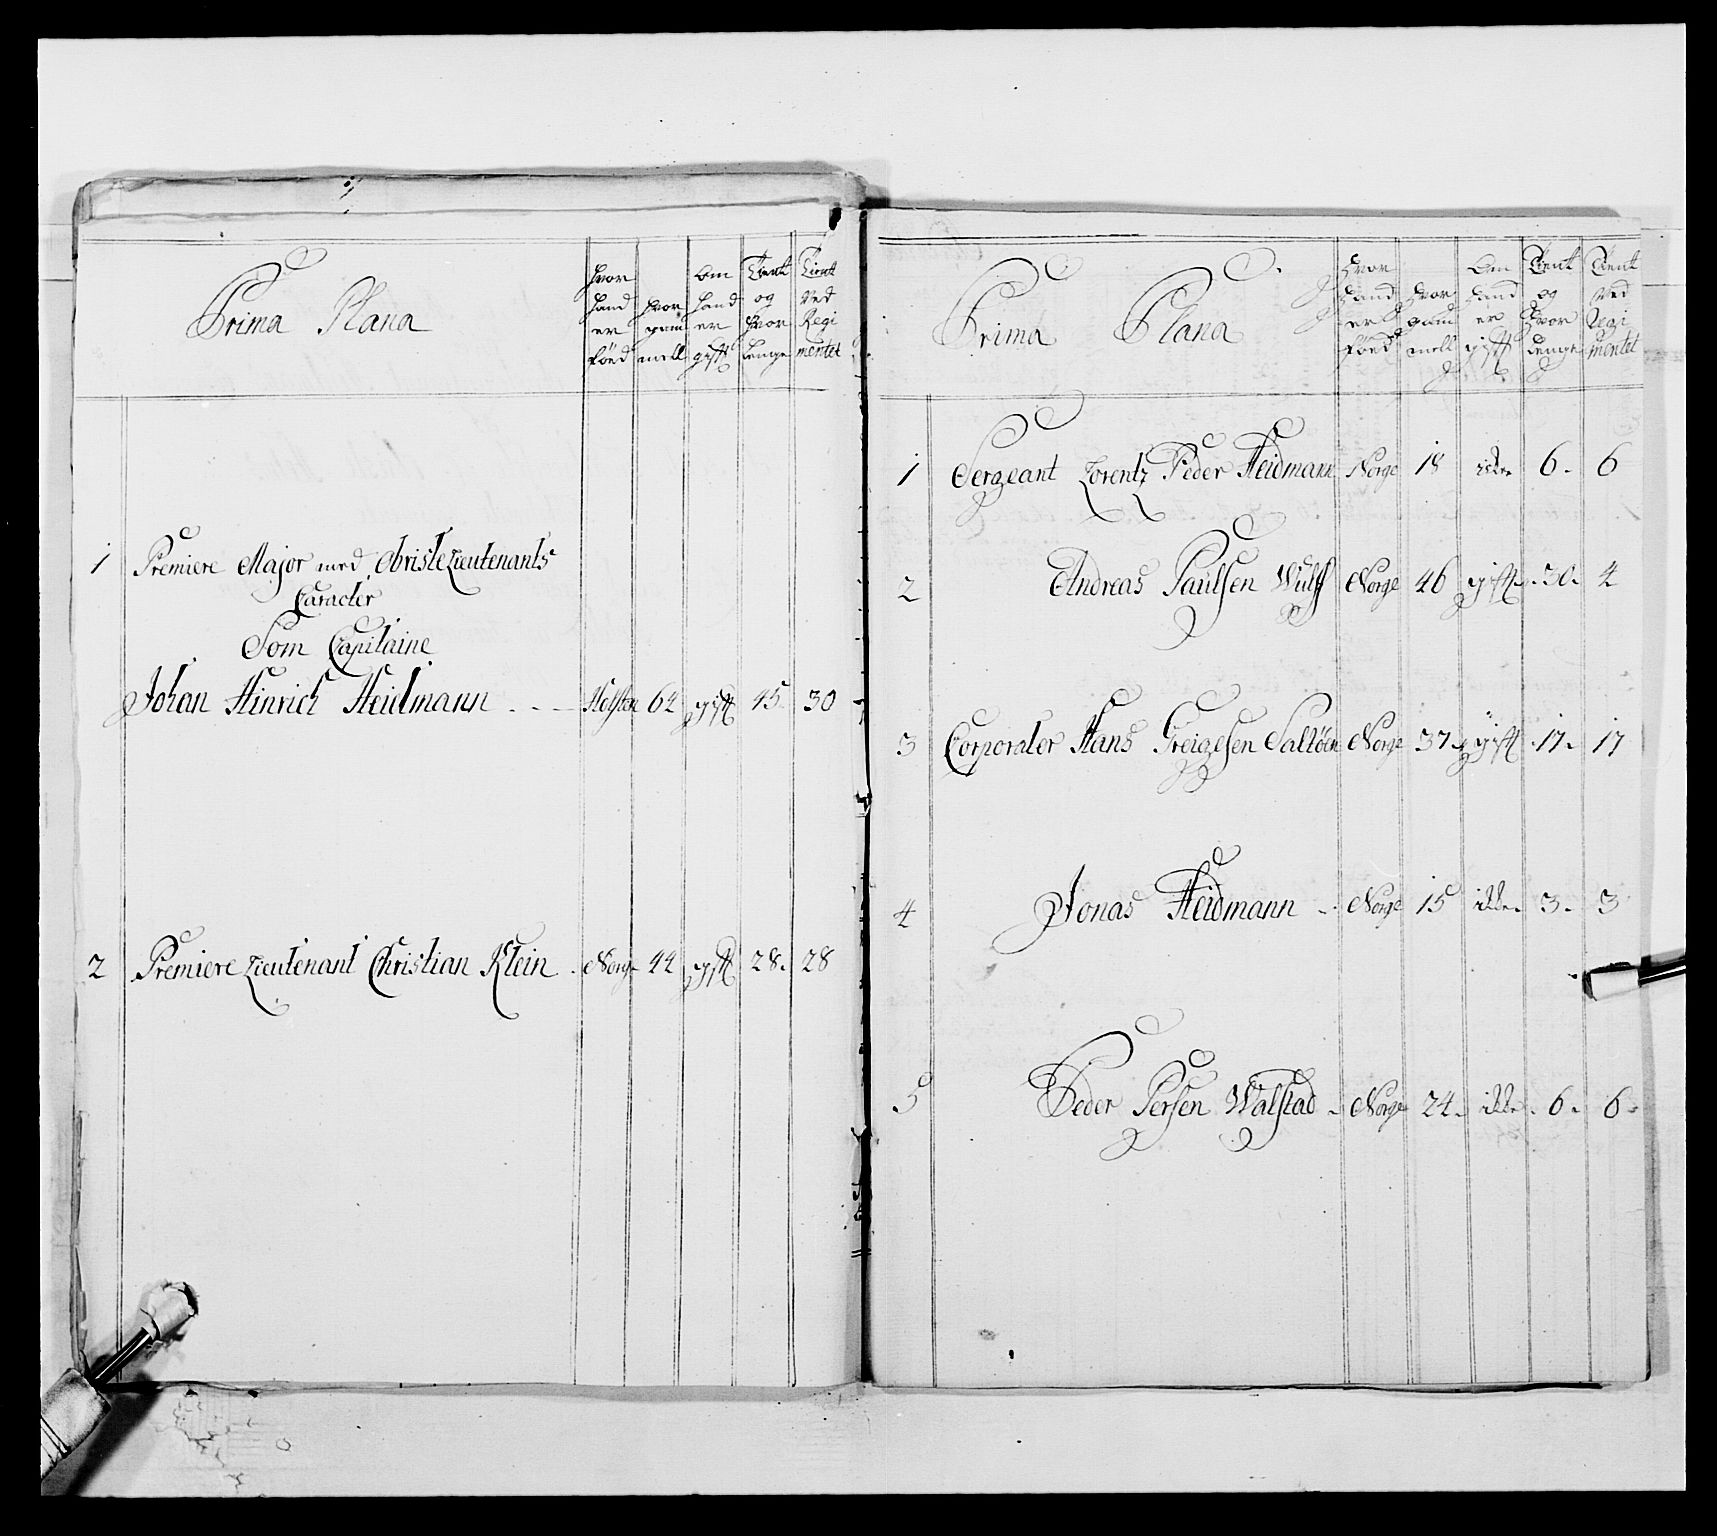 Prima Plana
Hvor hand er föed
Hvor gam mell
Om hand er gift
Tient og Hvor Lenge
Tient Ved Regi mentet
1 Premiere Major med ObristeLieutenants
Caracter
Som Capitaine
Johan Hinrich Heidmann Holsten 64 gift 45 30
2 Premiere Lieutenant Christian Klein Norge 44 gift 28 28
Prima Plana
Hvor hand er föed
Hvor gam mell
Om hand er gift
Tient og Hvor Lenge
Tient Ved Regi mentet
1 Sergeant Lorentz Peder Heidmann Norge 18 ikke 6 6
2 Andreas Paulsen Wulf Norge 46 gift 30 4
3 Corporaler Hans Greigesen Saltöen Norge 37 gift 17 17
4 Jonas Heidmann Norge 15 ikke 3 3
5 Peder Persen Walstad Norge 24 ikke 6 6